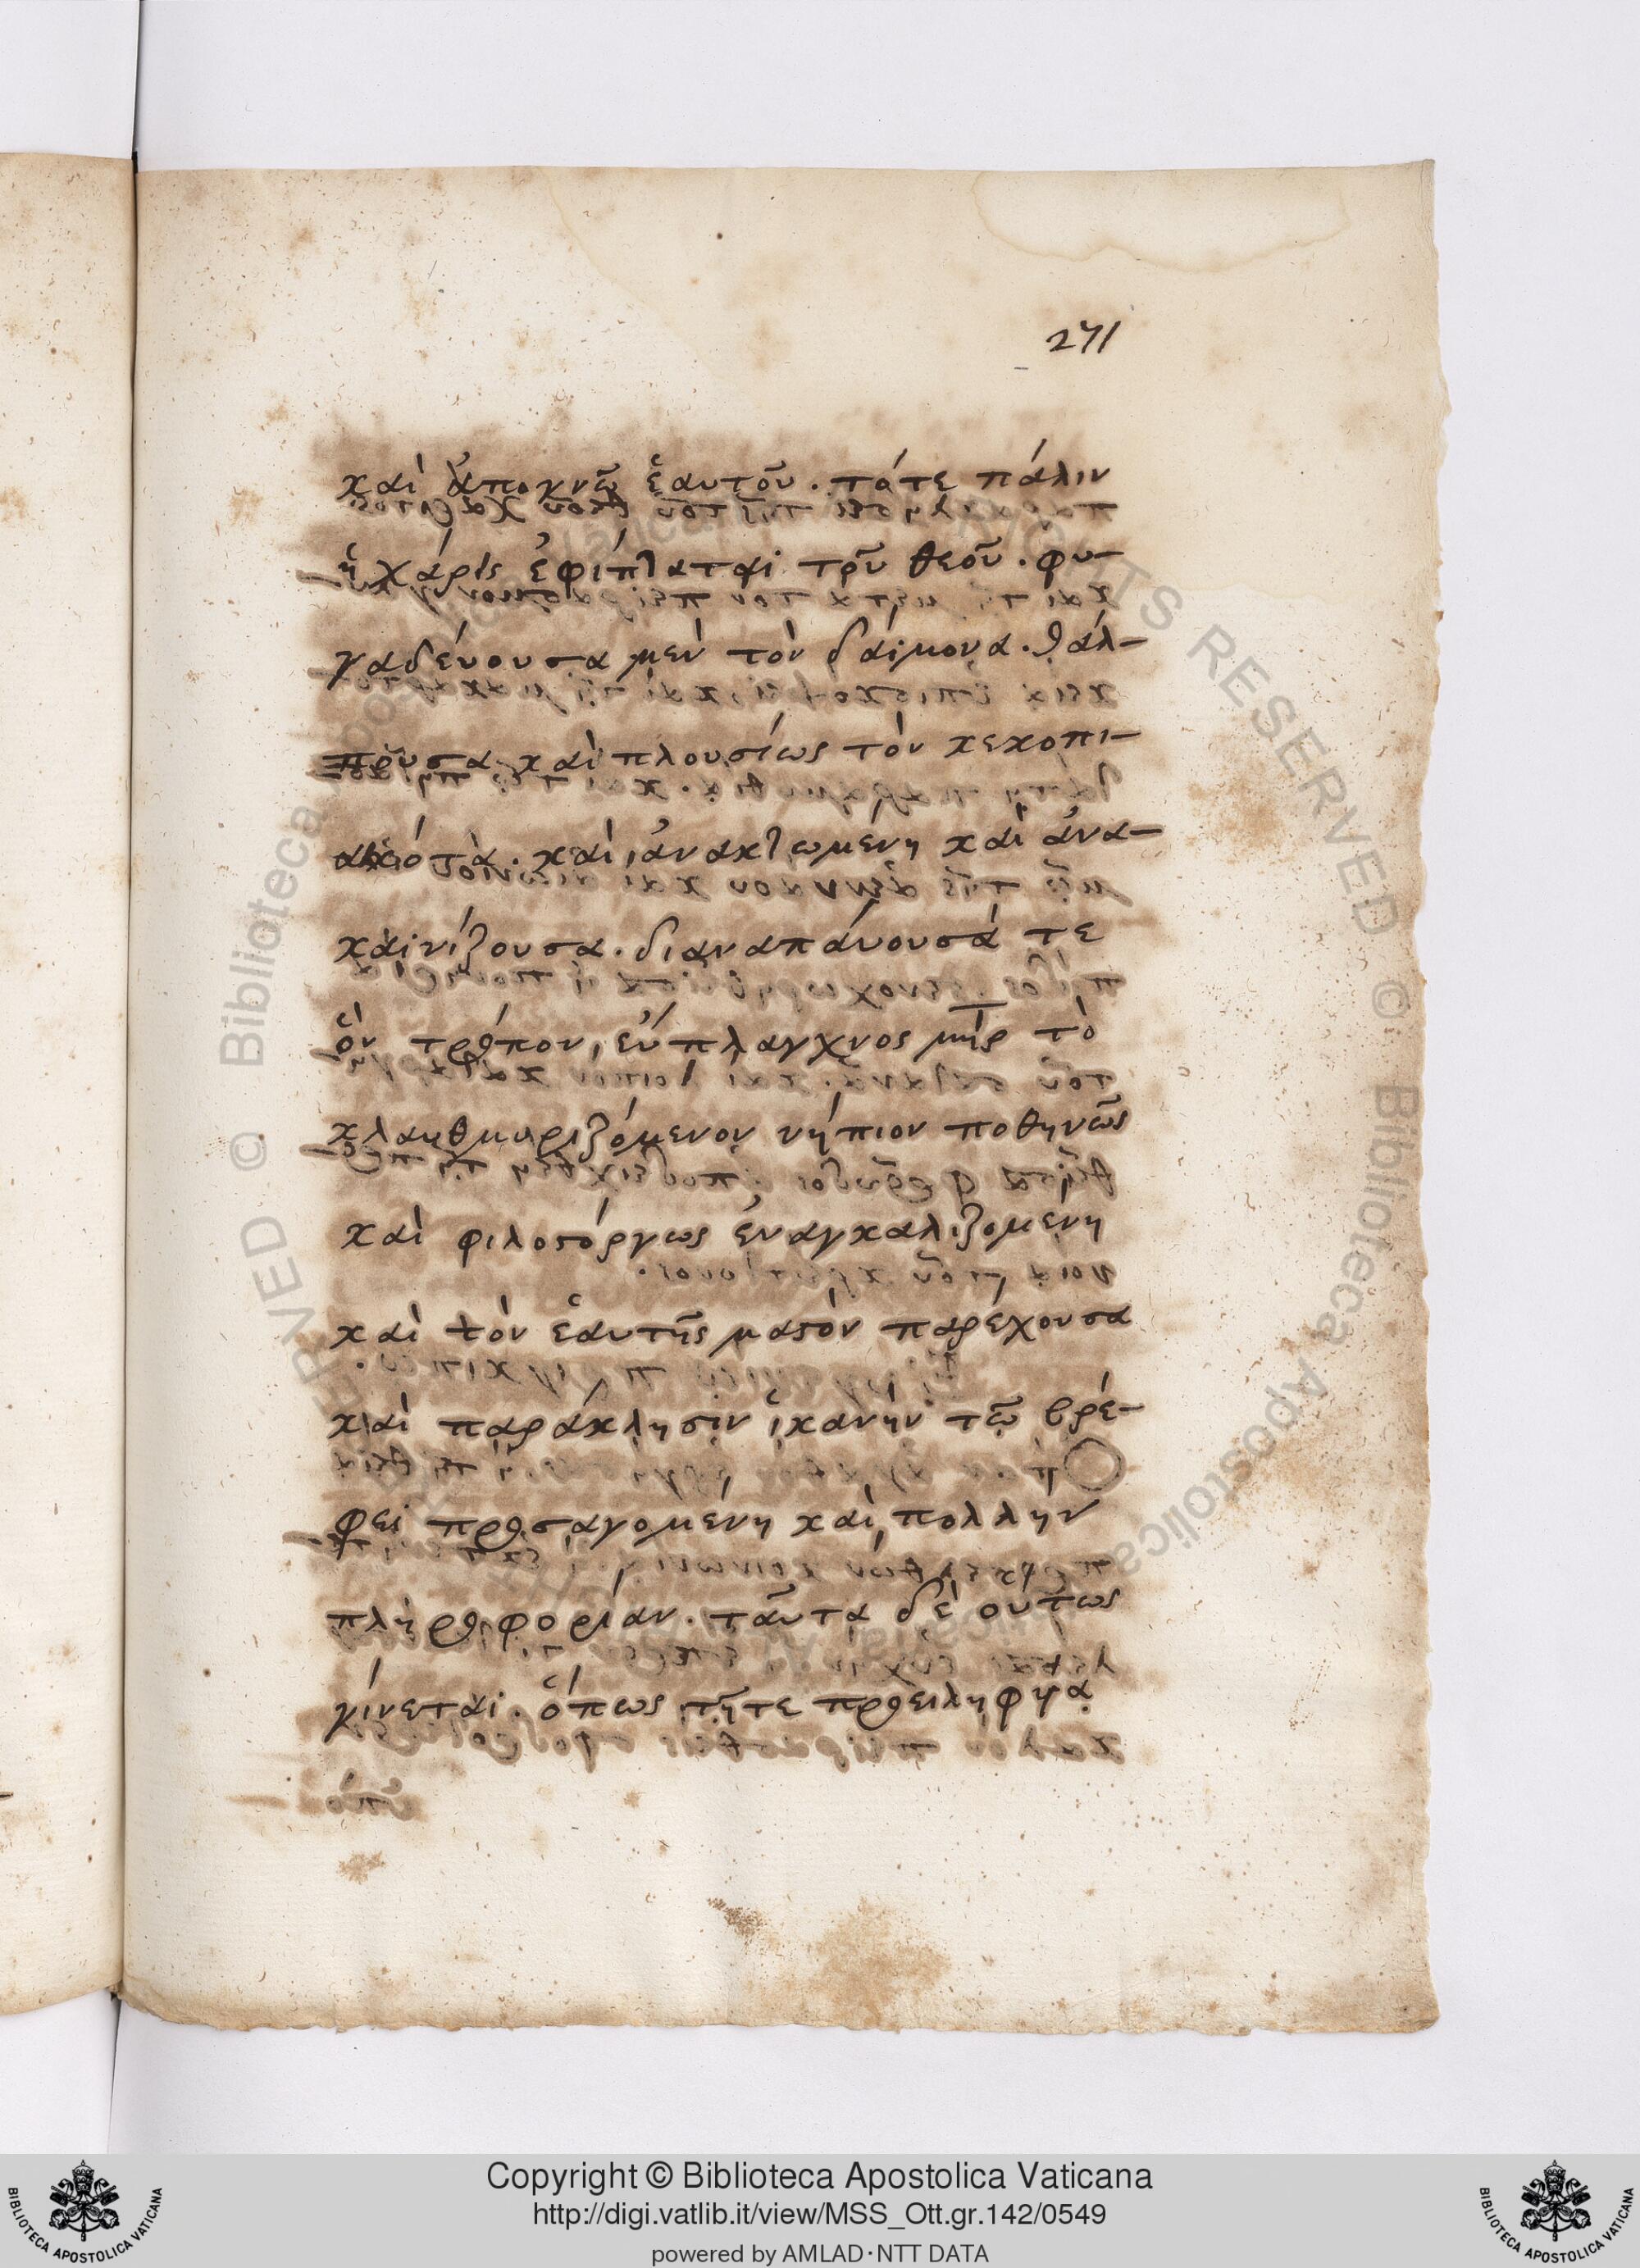 271
καὶ ἀπογνῶ ἑαυτοῦ. τότε πάλιν
ἡ χάρις ἐφίπταται τοῦ θεοῦ. φυ-
γαδεύουσα μὲν τὸν δαίμονα. θάλ-
πουσα καὶ πλουσίως τὸν κεκοπι-
ακότα. καὶ ἀνακτωμένη καὶ ἀνα-
καινίζουσα. διαναπάυουσά τε
ὃν τρόπον εὔπλαγχνος μηρ τὸ
κλαυθμυριζόμενον νήπιον ποθηνῶς
καὶ φιλοστόργως ἐναγκαλιζομένη
καὶ τὸν ἑαυτῆς μαστὸν παρέχουσα
καὶ παράκλησιν ἱκανὴν τῶ βρέ-
φει προσαγομένη καὶ πολλὴν
πληροφορίαν. ταῦτα δὲ οὕτως
γίνεται. ὅπως τῆτε προειληφυα
Copyright © Biblioteca Apostolica Vaticana
http://digi.vatlib.it/view/MSS_Ott.gr.142/0549
powered by AMLAD·NTT DATA
BIBLIOTECA APOSTOLICA VATICANA
BIBLIOTECA APOSTOLICA VATICANA